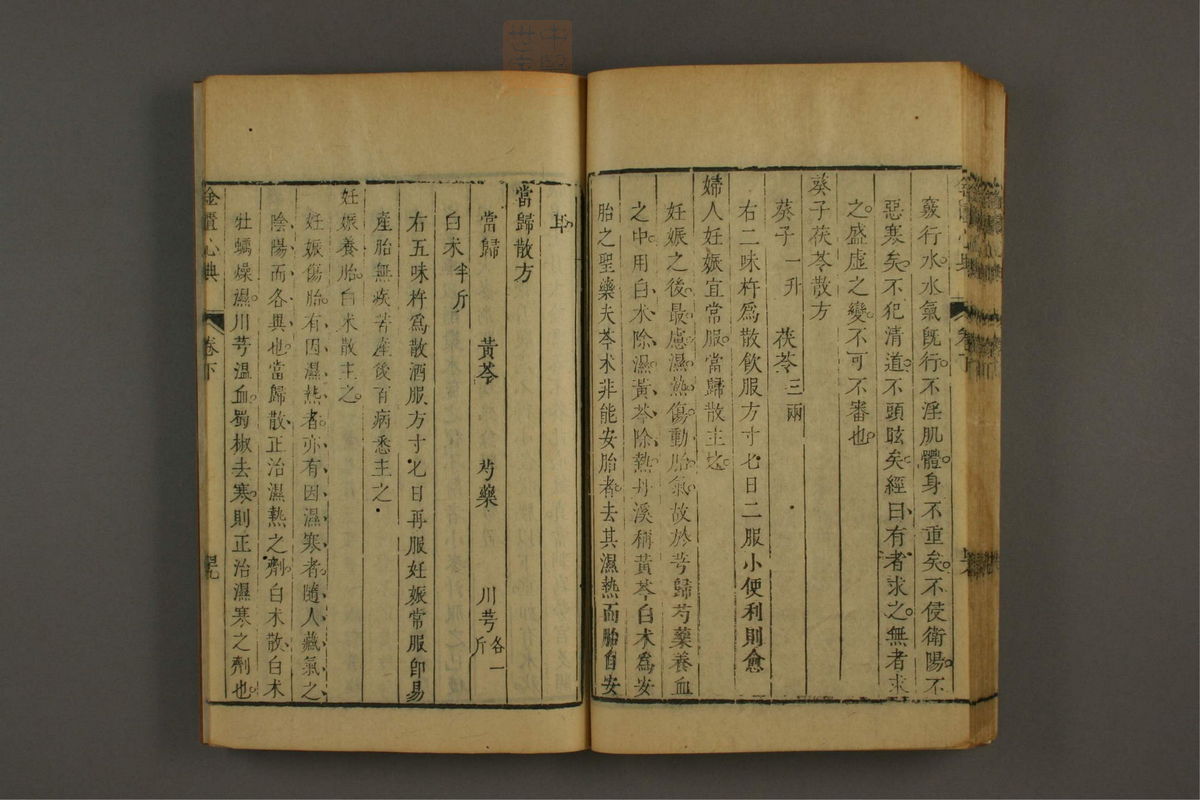 竅行水水氣既行不淫肌體身不重矣不使衛陽不
惡寒矣不犯清道不頭眩矣經曰有者求之無者求
之盛虛之變不可不審也
葵子茯苓散方
葵子一升 茯苓三兩
右二味杵爲散飲服方寸匕日二服小便利則愈
婦人妊娠宜常服當歸散主之
妊娠之後最慮濕熱傷動胎氣故於芎歸芍藥養血
之中用白朮除濕黃芩除熱丹溪稱黃芩白朮爲安
胎之聖藥夫芩朮非能安胎者去其濕熱而胎自安
耳
當歸散方
當歸 黃芩 芍藥 川芎各一斤
白朮半斤
右五味杵爲散酒服方寸匕日再服妊娠常服卽易
產胎無疾苦產後百病悉主之
妊娠養胎白朮散主之
妊娠傷胎有因濕熱者亦有因濕寒者隨人藏氣之
陰陽而各異也當歸散正治濕熱之劑白朮散白朮
牡蠣燥濕川芎溫血蜀椒去寒則正治濕寒之劑也
金匱心典 卷下